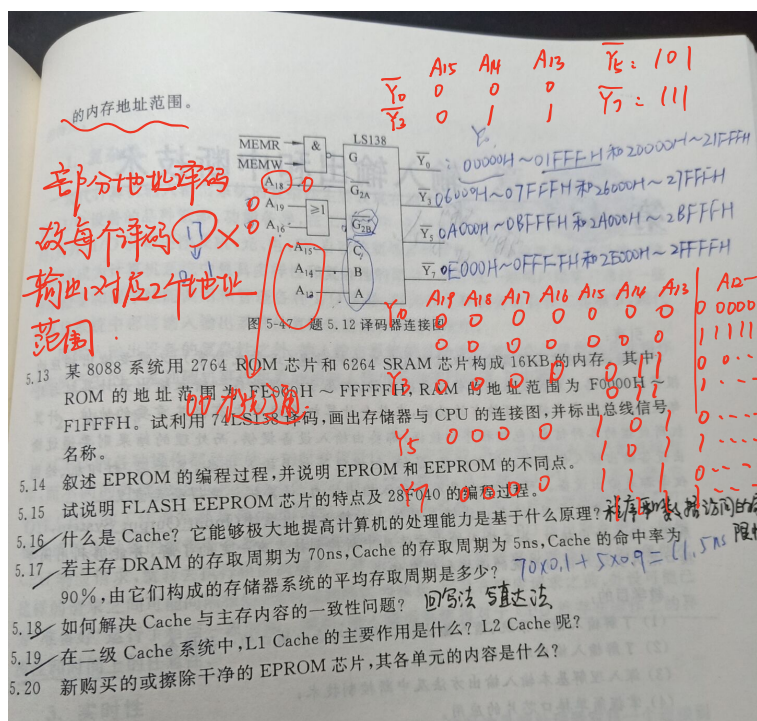 A15 A14 A13 Y5: 101
Y0 0 0 0 Y7: 111
Y3 0 1 1
的内存地址范围。
部分地址译码
故每个译码
输出对应2个地址
范围.
17
MEMR
MEMW
A18 0
0 A19
0 A16
A15
A14
A13
&
≥1
LS138
G
G2A
G2B
C
B
A
Y0
Y3
Y5
Y7
00000H~01FFFH和20000H~21FFFH
06000H~07FFFH和26000H~27FFFH
0A000H~0BFFFH和2A000H~2BFFFH
0E000H~0FFFFH和2E000H~2FFFFH
图 5-47 题 5.12 译码器连接图
A19 A18 A17 A16 A15 A14 A13 A12—
Y0 0 0 0 0 0 0 0 0 0000
0 0 0 0 0 0 0 1 1111
Y3 0 0 0 0 0 1 1 0 0...
0 1 1 1...
Y5 0 0 0 0 1 0 1 0...
1 0 1 1...
Y7 0 0 0 0 1 1 1 0...
5.13 某 8088 系统用 2764 ROM 芯片和 6264 SRAM 芯片构成 16KB 的内存。其中,
ROM 的地址范围为 FE000H~FFFFFH,RAM 的地址范围为 F0000H~
F1FFFH。试利用 74LS138 译码,画出存储器与 CPU 的连接图,并标出总线信号
名称。
5.14 叙述 EPROM 的编程过程,并说明 EPROM 和 EEPROM 的不同点。
5.15 试说明 FLASH EEPROM 芯片的特点及 28F040 的编程过程。
5.16 什么是 Cache? 它能够极大地提高计算机的处理能力是基于什么原理? 程序和数据访问的局
限性
5.17 若主存 DRAM 的存取周期为 70ns,Cache 的存取周期为 5ns,Cache 的命中率为
90%,由它们构成的存储器系统的平均存取周期是多少? 70×0.1+5×0.9=11.5ns
5.18 如何解决 Cache 与主存内容的一致性问题? 回写法 写直达法
5.19 在二级 Cache 系统中,L1 Cache 的主要作用是什么? L2 Cache 呢?
5.20 新购买的或擦除干净的 EPROM 芯片,其各单元的内容是什么?